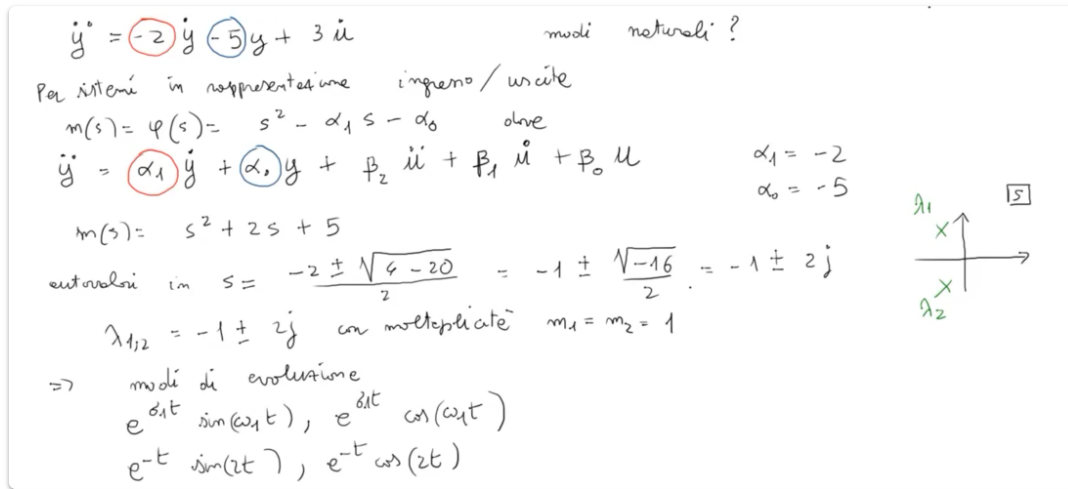 ÿ = -2 ẏ -5 y + 3 u̇ modi naturali ?
Per sistemi in rappresentazione ingresso / uscita
m(s) = φ(s) = s² - α₁ s - α₀ dove
ÿ = α₁ ẏ + α₀ y + β₂ ü + β₁ u̇ + β₀ u
α₁ = -2
α₀ = -5
m(s) = s² + 2s + 5
autovalori in s = (-2 ± √(4 - 20))/2 = -1 ± √(-16)/2 = -1 ± 2j
λ₁,₂ = -1 ± 2j con molteplicità m₁ = m₂ = 1
=> modi di evoluzione
e^σ₁t sin(ω₁t), e^σ₁t cos(ω₁t)
e^-t sin(2t), e^-t cos(2t)
s
λ₁
λ₂